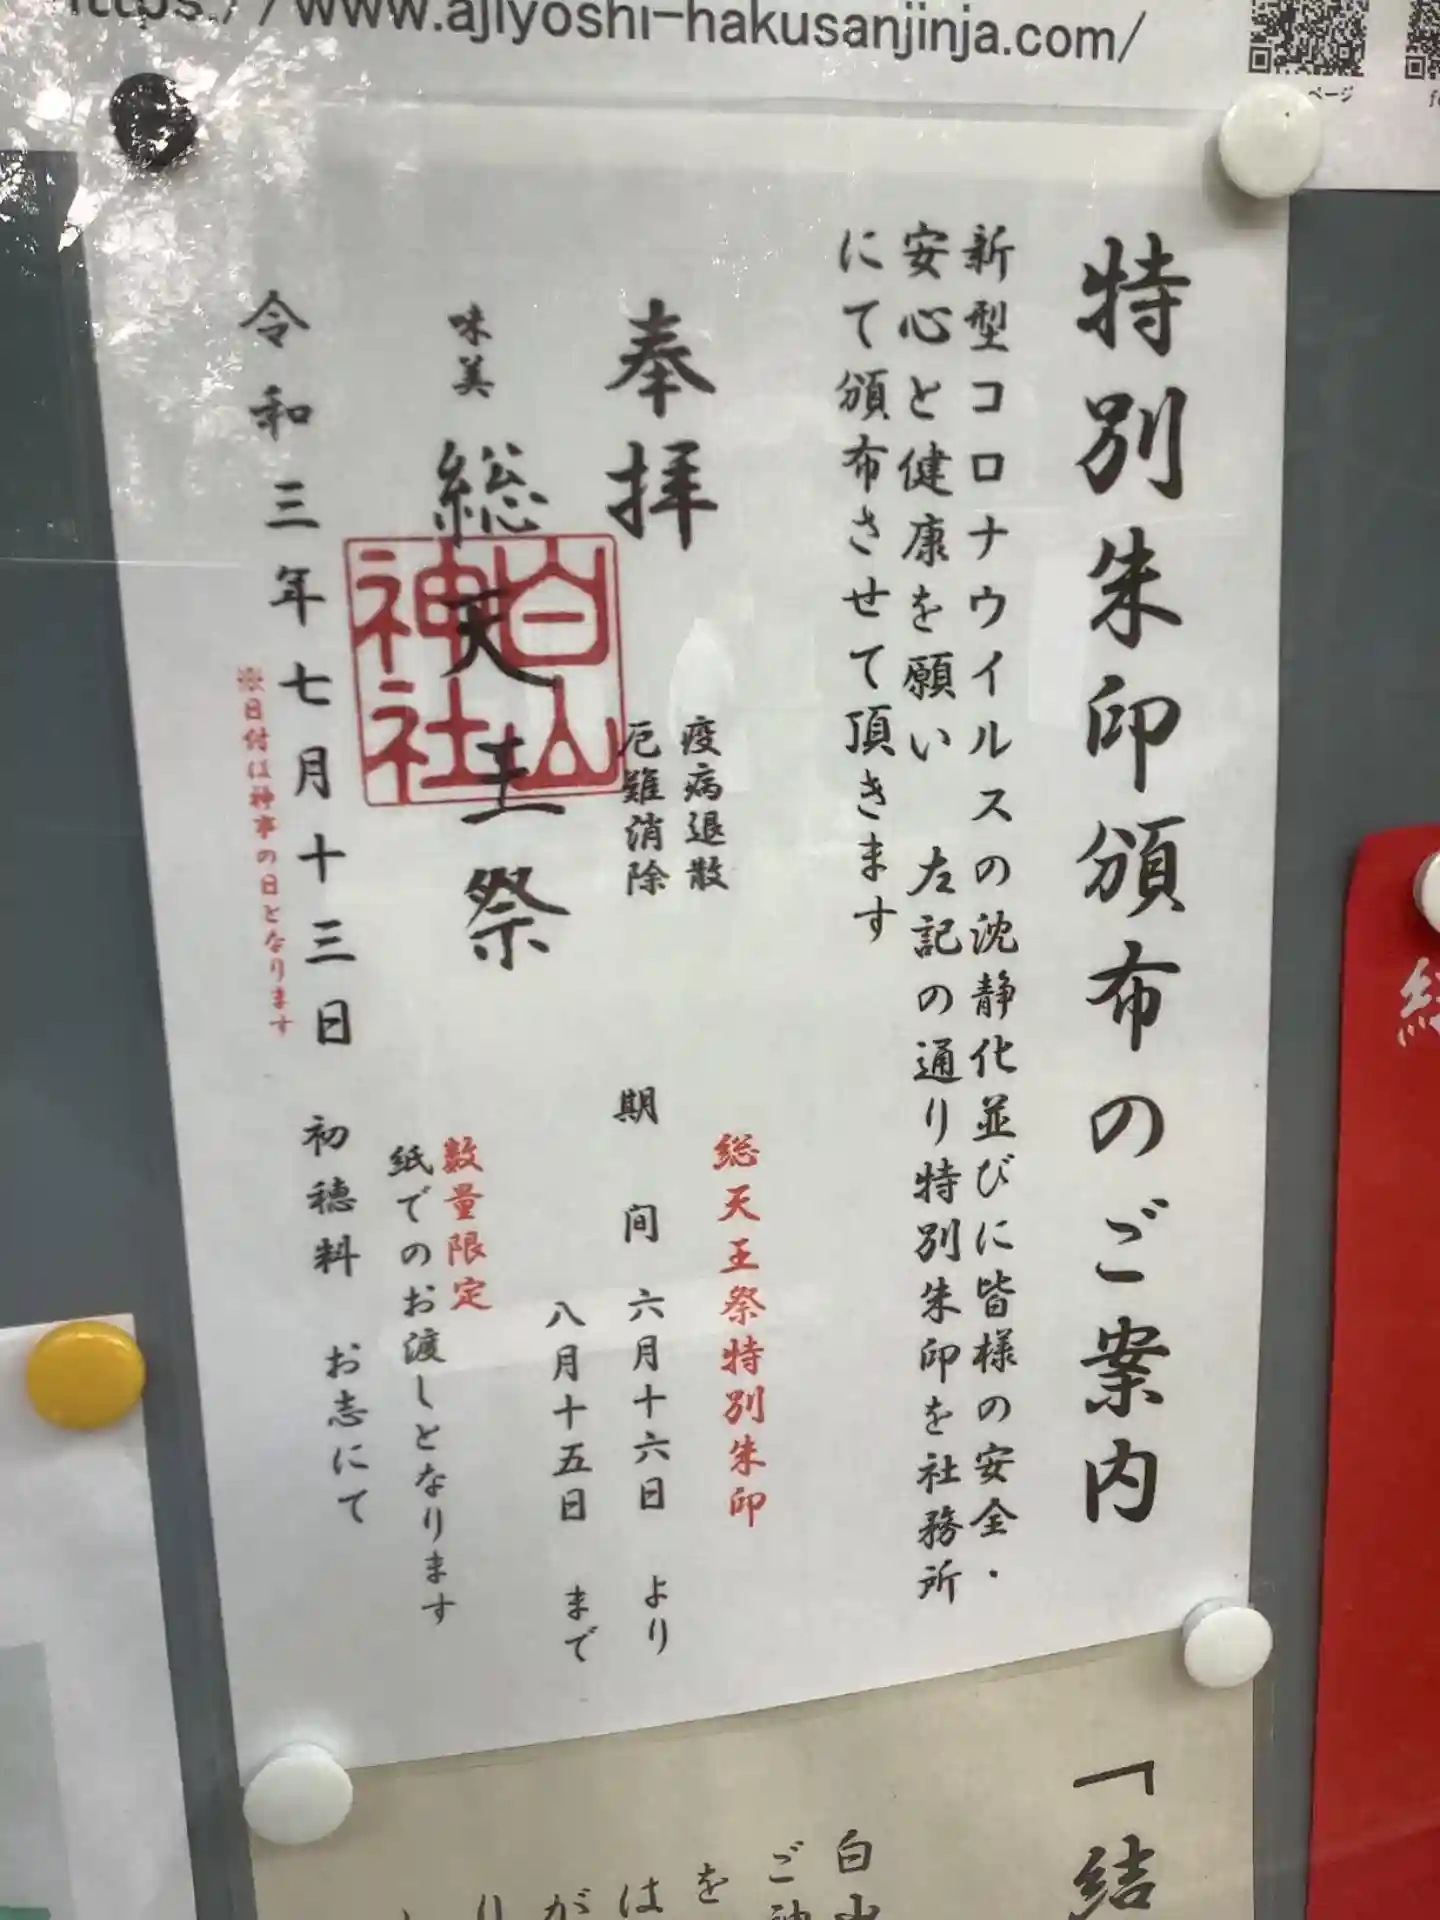 https://www.ajiyoshi-hakusanjinja.com/
ページ
特別朱印頒布のご案内
新型コロナウイルスの沈静化並びに皆様の安全・
安心と健康を願い 左記の通り特別朱印を社務所
にて頒布させて頂きます
奉拝
疫病退散
厄難消除
味美
総天王祭
白山
神社
令和三年七月十三日
※日付は神事の日となります
総天王祭特別朱印
期間 六月十六日 より
八月十五日 まで
数量限定
紙でのお渡しとなります
初穂料 お志にて
「結
白山
ご神
を
は
が
り